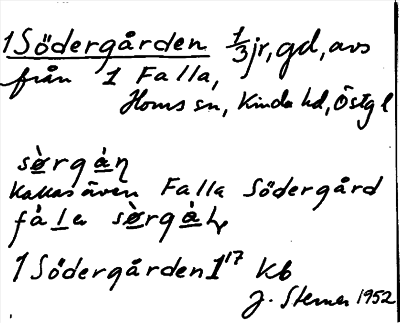 1 Södergården 1/3 jr, gd, avs
från 1 Falla,
Horns sn, Kinda hd, Östgl
sørgàn
kallas även Falla Södergård
fàla sørgàḷ
1 Södergården 1¹⁷ Kb
J. Sterner 1952